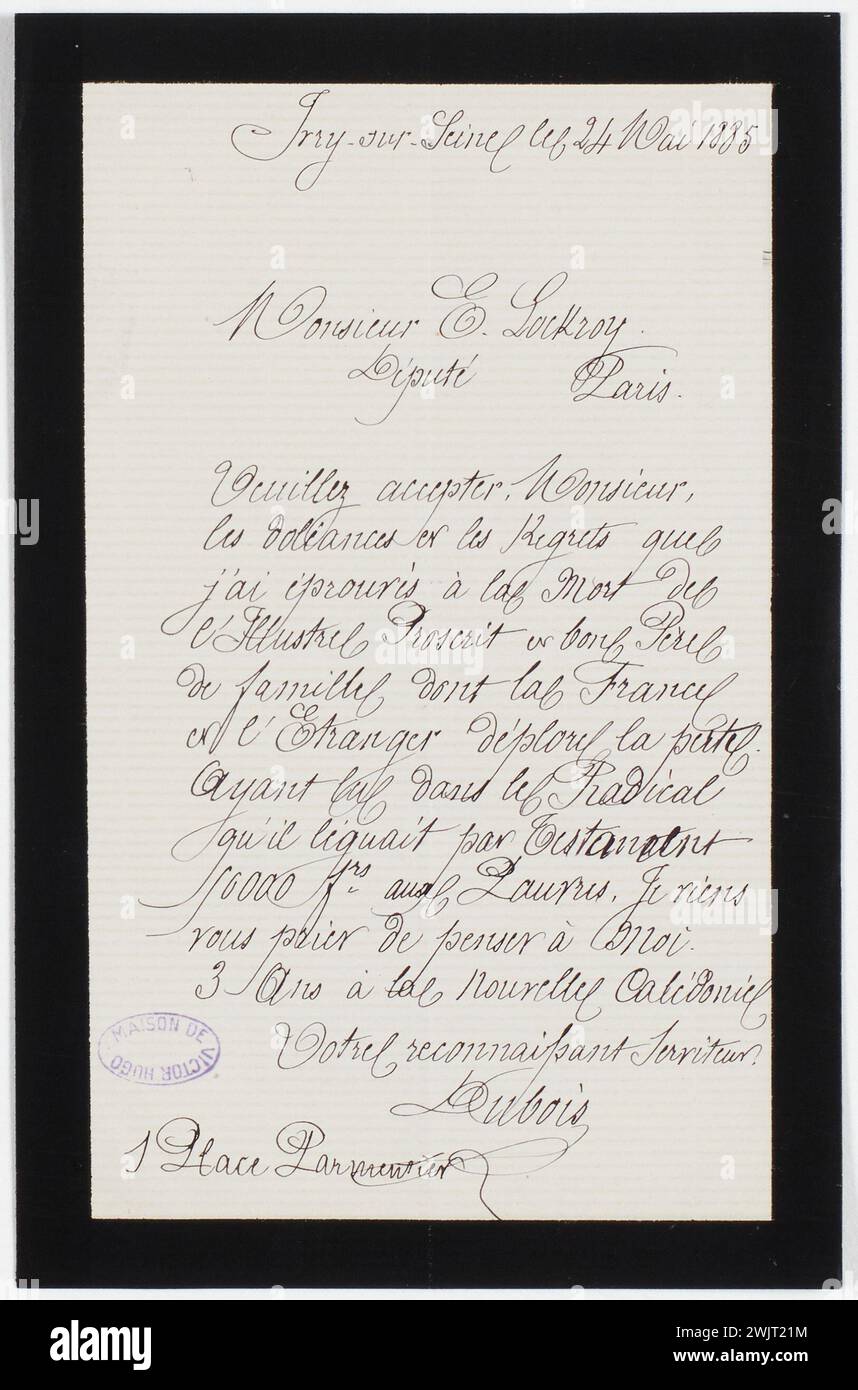 Ivry-sur-Seine le 24 Mai 1885
Monsieur E. Lockroy.
Député Paris.
Veuillez accepter, Monsieur,
les doléances et les Regrets que
j'ai éprouvés à la Mort de
l'Illustre Proscrit et bon Père
de famille dont la France
et l'Etranger déplore la perte.
Ayant lu dans le Radical
qu'il léguait par Testament
50000 frs aux Pauvres. Je viens
vous prier de penser à Moi.
3 Ans à la Nouvelle Calédonie
Votre reconnaissant Serviteur.
Dubois
1 Place Parmentier
MAISON DE VICTOR HUGO
alamy
Image ID: 2WJT21M
www.alamy.com